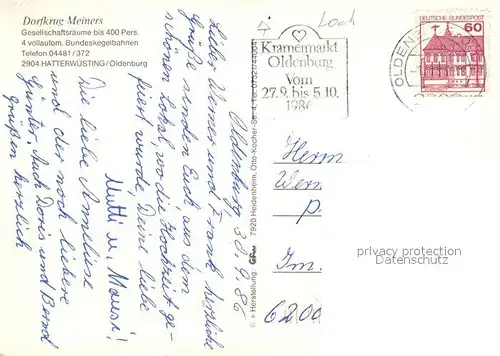 Dorfkrug Meiners
Gesellschaftsräume bis 400 Pers.
4 vollautom. Bundeskegelbahnen
Telefon 04481 / 372
2904 HATTERWÜSTING/Oldenburg
Oldenburg 9. 86
Lieber Werner und Frank herzliche
Grüße senden Euch aus dem
schönen Lokal, wo die Hochzeit ge-
feiert wurde, Deine liebe
Mutti u. Mausi!
Die liebe Anneliese
und der noch liebere
Günter. Auch Doris und Bernd
grüßen herzlich
© + Herstellung: 7920 Heidenheim, Otto-Kocher-Str. 4, Tel.
Kramermarkt
Oldenburg
Vom
27.9. bis 5.10.
1986
DEUTSCHE BUNDESPOST
60
OLDENB
Herrn
Wern
Im.
6200
privacy protection
watermark